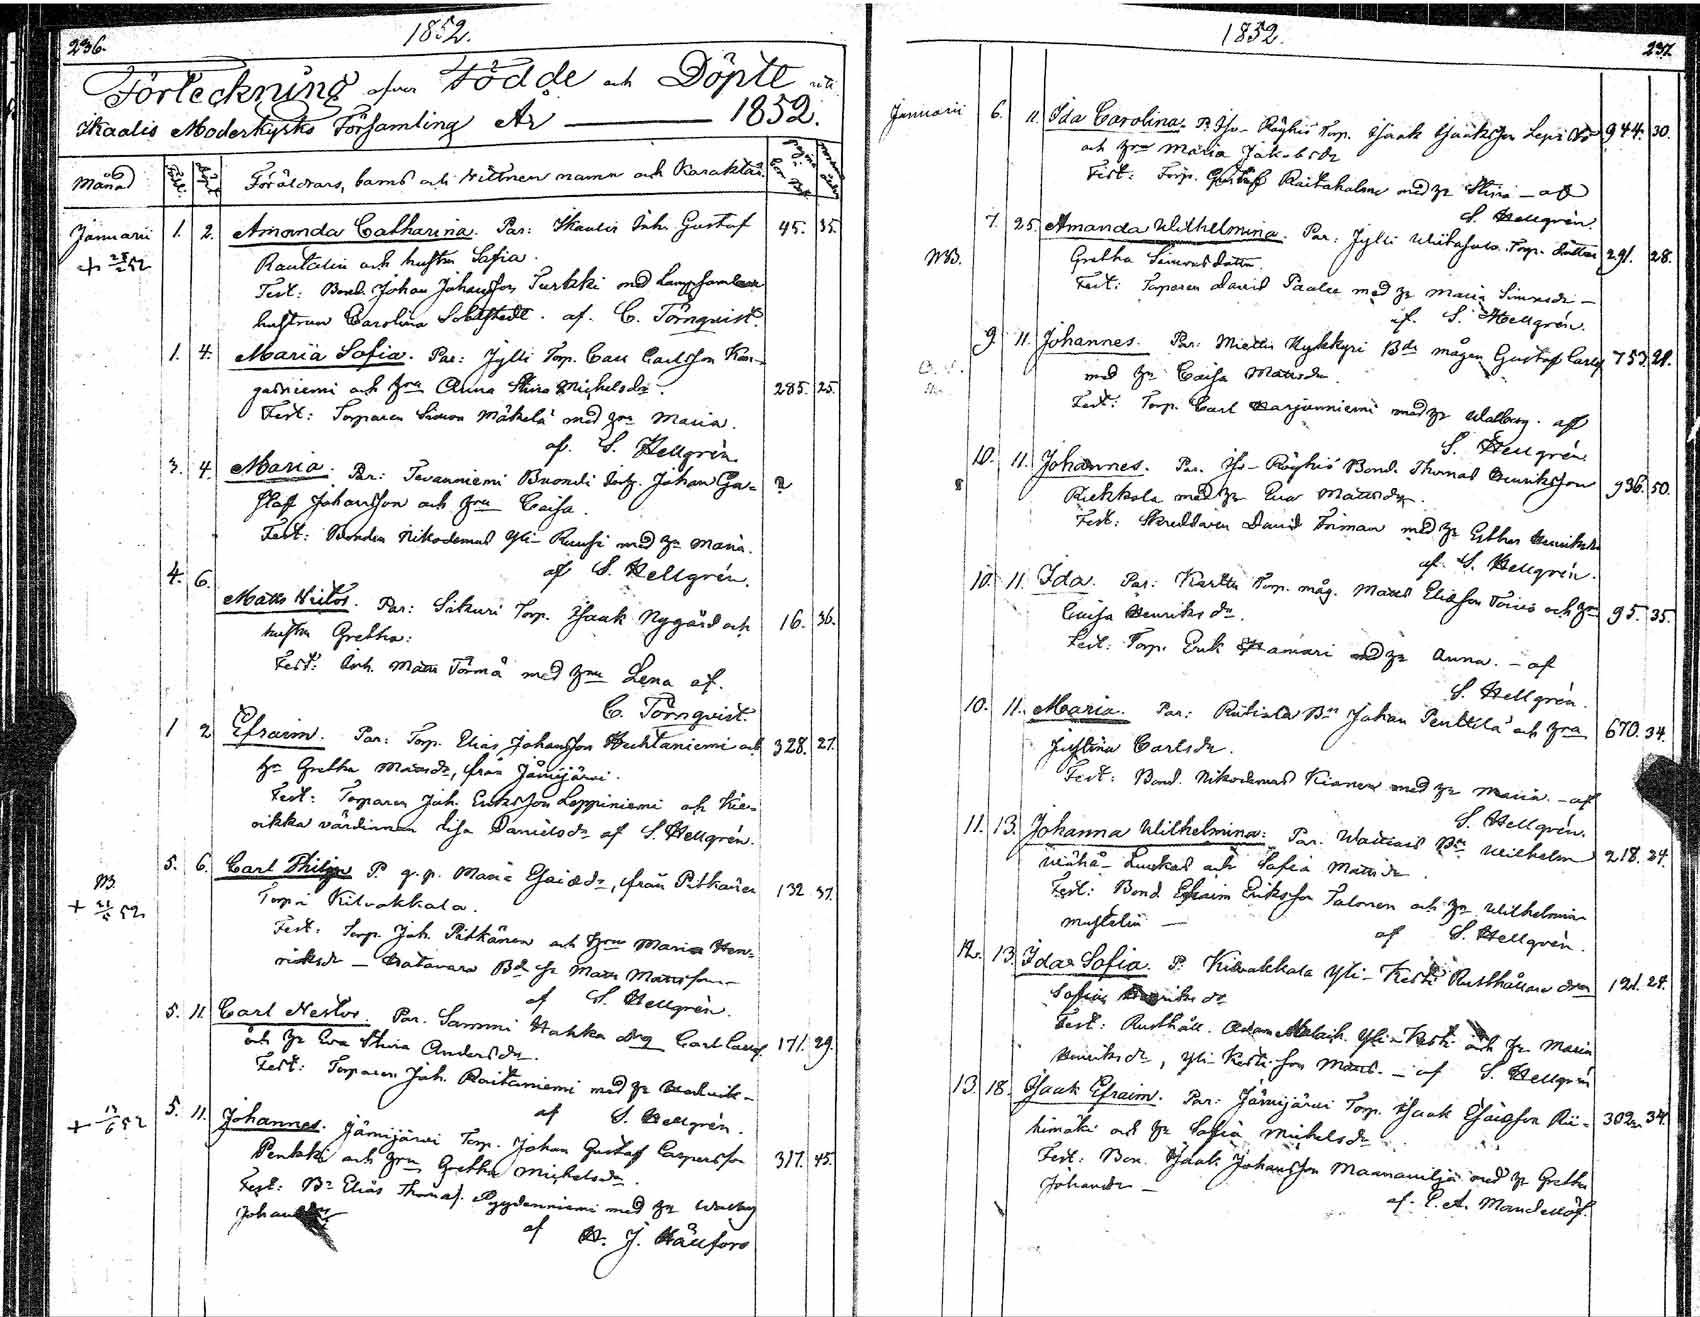 236.
1852.
Förteckning öfver Födde och Döpte uti
Ikaalis Moderkyrko Församling År — 1852.
Månad
Född.
Döpt.
Föräldrars, barns och Vittnen namn och Karakter.
Januarii 1. 2. Amanda Catharina. Par: Ikaalis Inh. Gustaf 45. 35.
Rautalin och hustru Safia.
Test: Bond. Johan Johansson Turkki med
hustrun Carolina. af. C. Törnqvist.
1. 4. Maria Sofia. Par: Jylli Torp. Carl Carlsson Kan-
gasniemi och hru Anna Stina Michelsdr. 285. 25.
Test: Torparen Simon Mäkelä med hru Maria.
af. S. Hellgrén.
3. 4. Maria. Par: Tevaniemi Johan Gu-
staf Johansson och hru Caisa.
Test: Bonden Nikodemus Yli-Ruusi med hr Maria.
af S. Hellgrén.
4. 6.
Matts Viktor. Par: Sikuri Torp. Isaak Nygård och 16. 36.
hustru Gretha:
Test: Inh. Matts Törmä med hru Lena af.
C. Törnqvist.
1 2 Efraim. Par: Torp. Elias Johansson Heiktaniemi och 328. 27.
hr Gretha Mattsdr, från Jämijärvi.
Test: Torparen Joh. Eriksson Leppiniemi och Kie-
oikka värdinnan Lisa Danielsdr af S. Hellgrén.
NB.
5. 6. Carl Philip P. q.p. Maria Esaiædr, från Pitkänen 132 37.
Torp i Kilvakkala.
Test: Torp. Joh. Pitkänen och hru Maria Hen-
riksdr — Matts Mattsson —
af S. Hellgrén.
5. 11. Carl Nestor. Par. Sammi Hakka drg Carl Carls. 171. 29.
och hr Eva Stina Andersdr.
Test: Torparen Joh. Raitaniemi med hr Hedvik —
af S. Hellgrén.
5. 11. Johannes. Jämijärvi Torp. Johan Gustaf Caspersson
Penkki och hru Gretha Michelsdr. 317. 45.
Test: Br Elias Thomas. Pyydenniemi med hr Walborg
Johansdr
af H. J. Hällfors
1852.
237.
Januarii 6. 11. Ida Carolina. P. Iso-Röyhiö Torp. Isaak Isaksson 944. 30.
och hru Maria Jakobsdr
Test: Torp. Gustaf Raitaholm med hr Stina — af
S. Hellgrén.
7. 25. Amanda Wilhelmina. Par: Jylli Torp. dotter 291. 28.
NB. Gretha Simonsdotter.
Test: Torparen David Paalu med hr Maria Simonsdr —
af. S. Hellgrén.
9 11. Johannes. Par: Miettis Mykkyri Bds mågen Gustaf Carls. 753 28.
med hr Caisa Mattsdr.
Test: Torp. Carl Harjunniemi med hr Walborg. af
S. Hellgrén.
10. 11. Johannes. Par. Iso-Röyhiö Bond. Thomas Henriksson 936. 50.
Riekkola med hr Eva Mattsdr.
Test: Skreddaren David Friman med hr Esther Henriksdr
af. S. Hellgrén.
10. 11. Ida. Par: Torp. måg. Matts Eliasson och hru 95. 35.
Caisa Henriksdr.
Test: Torp. Erik Hamari med hr Anna. — af
S. Hellgrén.
10. 11. Maria. Par: Riitiala Bn Johan Penttilä och hru 670. 34.
Justina Carlsdr.
Test: Bond. Nikodemus Kianen med hr Maria. — af
S. Hellgrén.
11. 13. Johanna Wilhelmina: Par. Bn Wilhelm 218. 24.
Vähä-Luukas och Safia Mattsdr.
Test: Bond. Efraim Eriksson Talonen och hr Wilhelmina
Mustelin —
af S. Hellgrén.
12. 13. Ida Sofia. P. Kilvakkala Yli-Kesti Rusthållare 121. 24.
Sofia Henriksdr
Test: Rusthåll. Adam Malaik. Yli-Kesti och hr Maria
Henriksdr, Yli Kesti son Matts. — af S. Hellgrén
13. 18. Isaak Efraim. Par: Jämijärvi Torp. Isaak Esaiæson Rii- 302. 34.
himäki och hr Safia Michelsdr
Test: Bon. Isaak Johansson Maanamilja med hr Gretha
Johansdr —
af. C. A. Mandellöf.